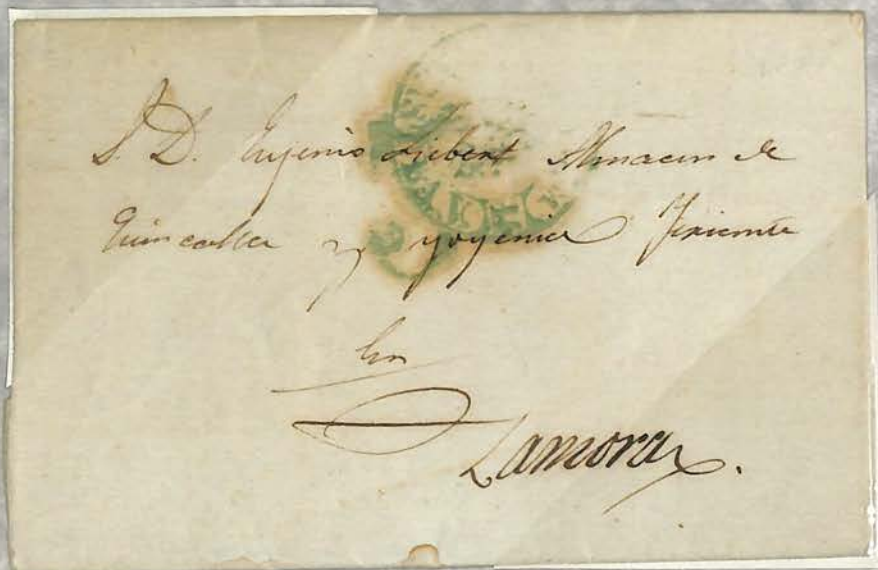 S. D. Eujenio Liebert Almacen de
Quincalla y yoyeria
En
Zamora.